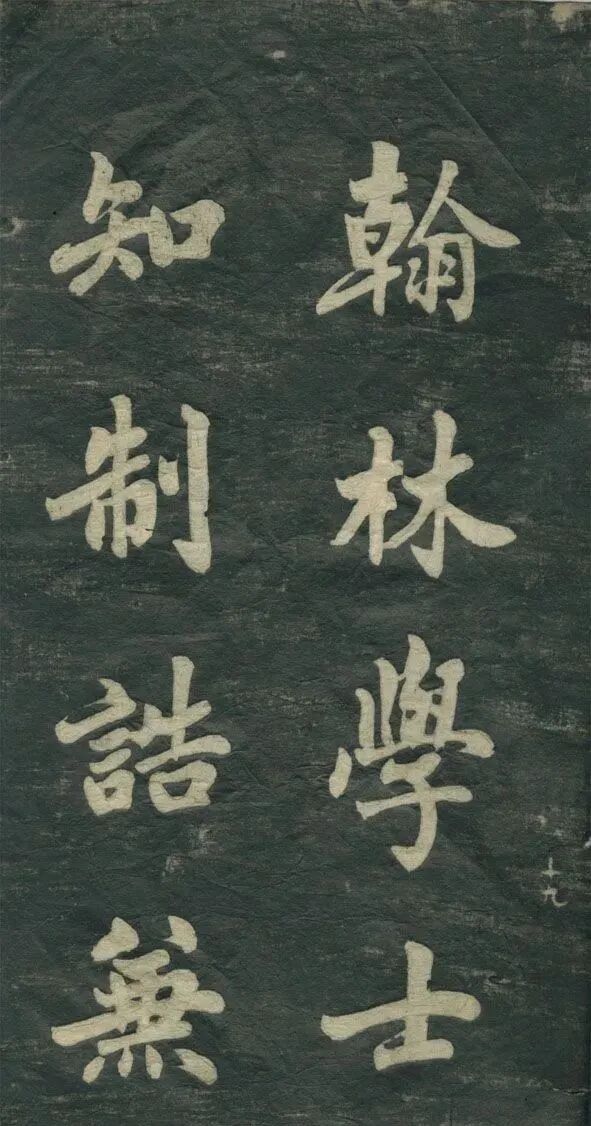 十九
翰林學士
知制誥兼